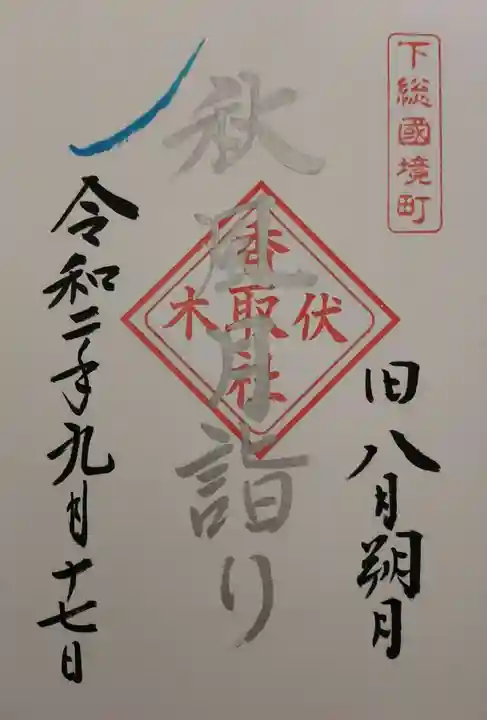 下総國境町
旧八月朔日
伏木
香取社
秋風月詣り
令和二年九月十七日